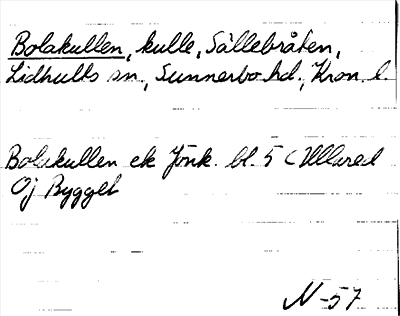 Bolakullen, kulle, Sällebråten,
Lidhults sn., Sunnerbo hd., Kron. l.
Bolakullen ek Jönk. bl. 5 (Ullared
Oj Bygget
N-57